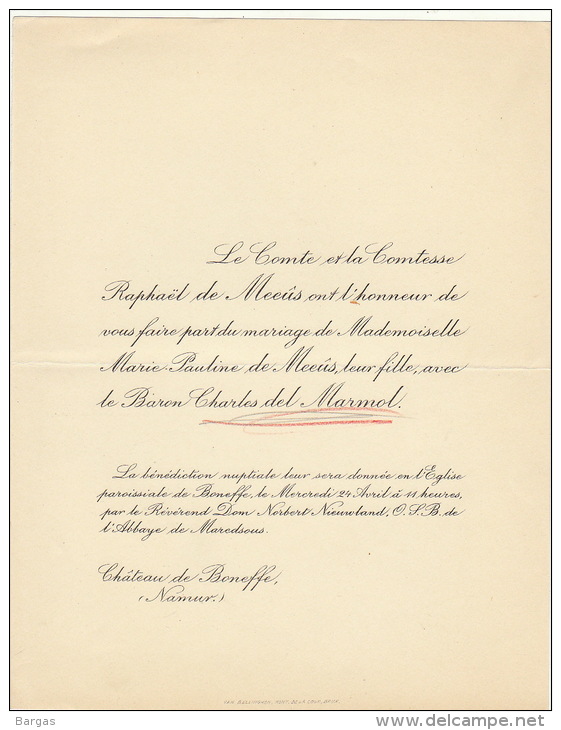 Le Comte et la Comtesse
Raphaël de Meeûs, ont l'honneur de
vous faire part du mariage de Mademoiselle
Marie-Pauline de Meeûs, leur fille, avec
le Baron Charles del Marmol.
La bénédiction nuptiale leur sera donnée en l'Église
paroissiale de Boneffe, le Mercredi 24 Avril à 11 heures,
par le Révérend Dom Norbert Nieuwland, O.S.B. de
l'Abbaye de Maredsous.
Château de Boneffe,
(Namur.)
Bargas
www.delcampe.net